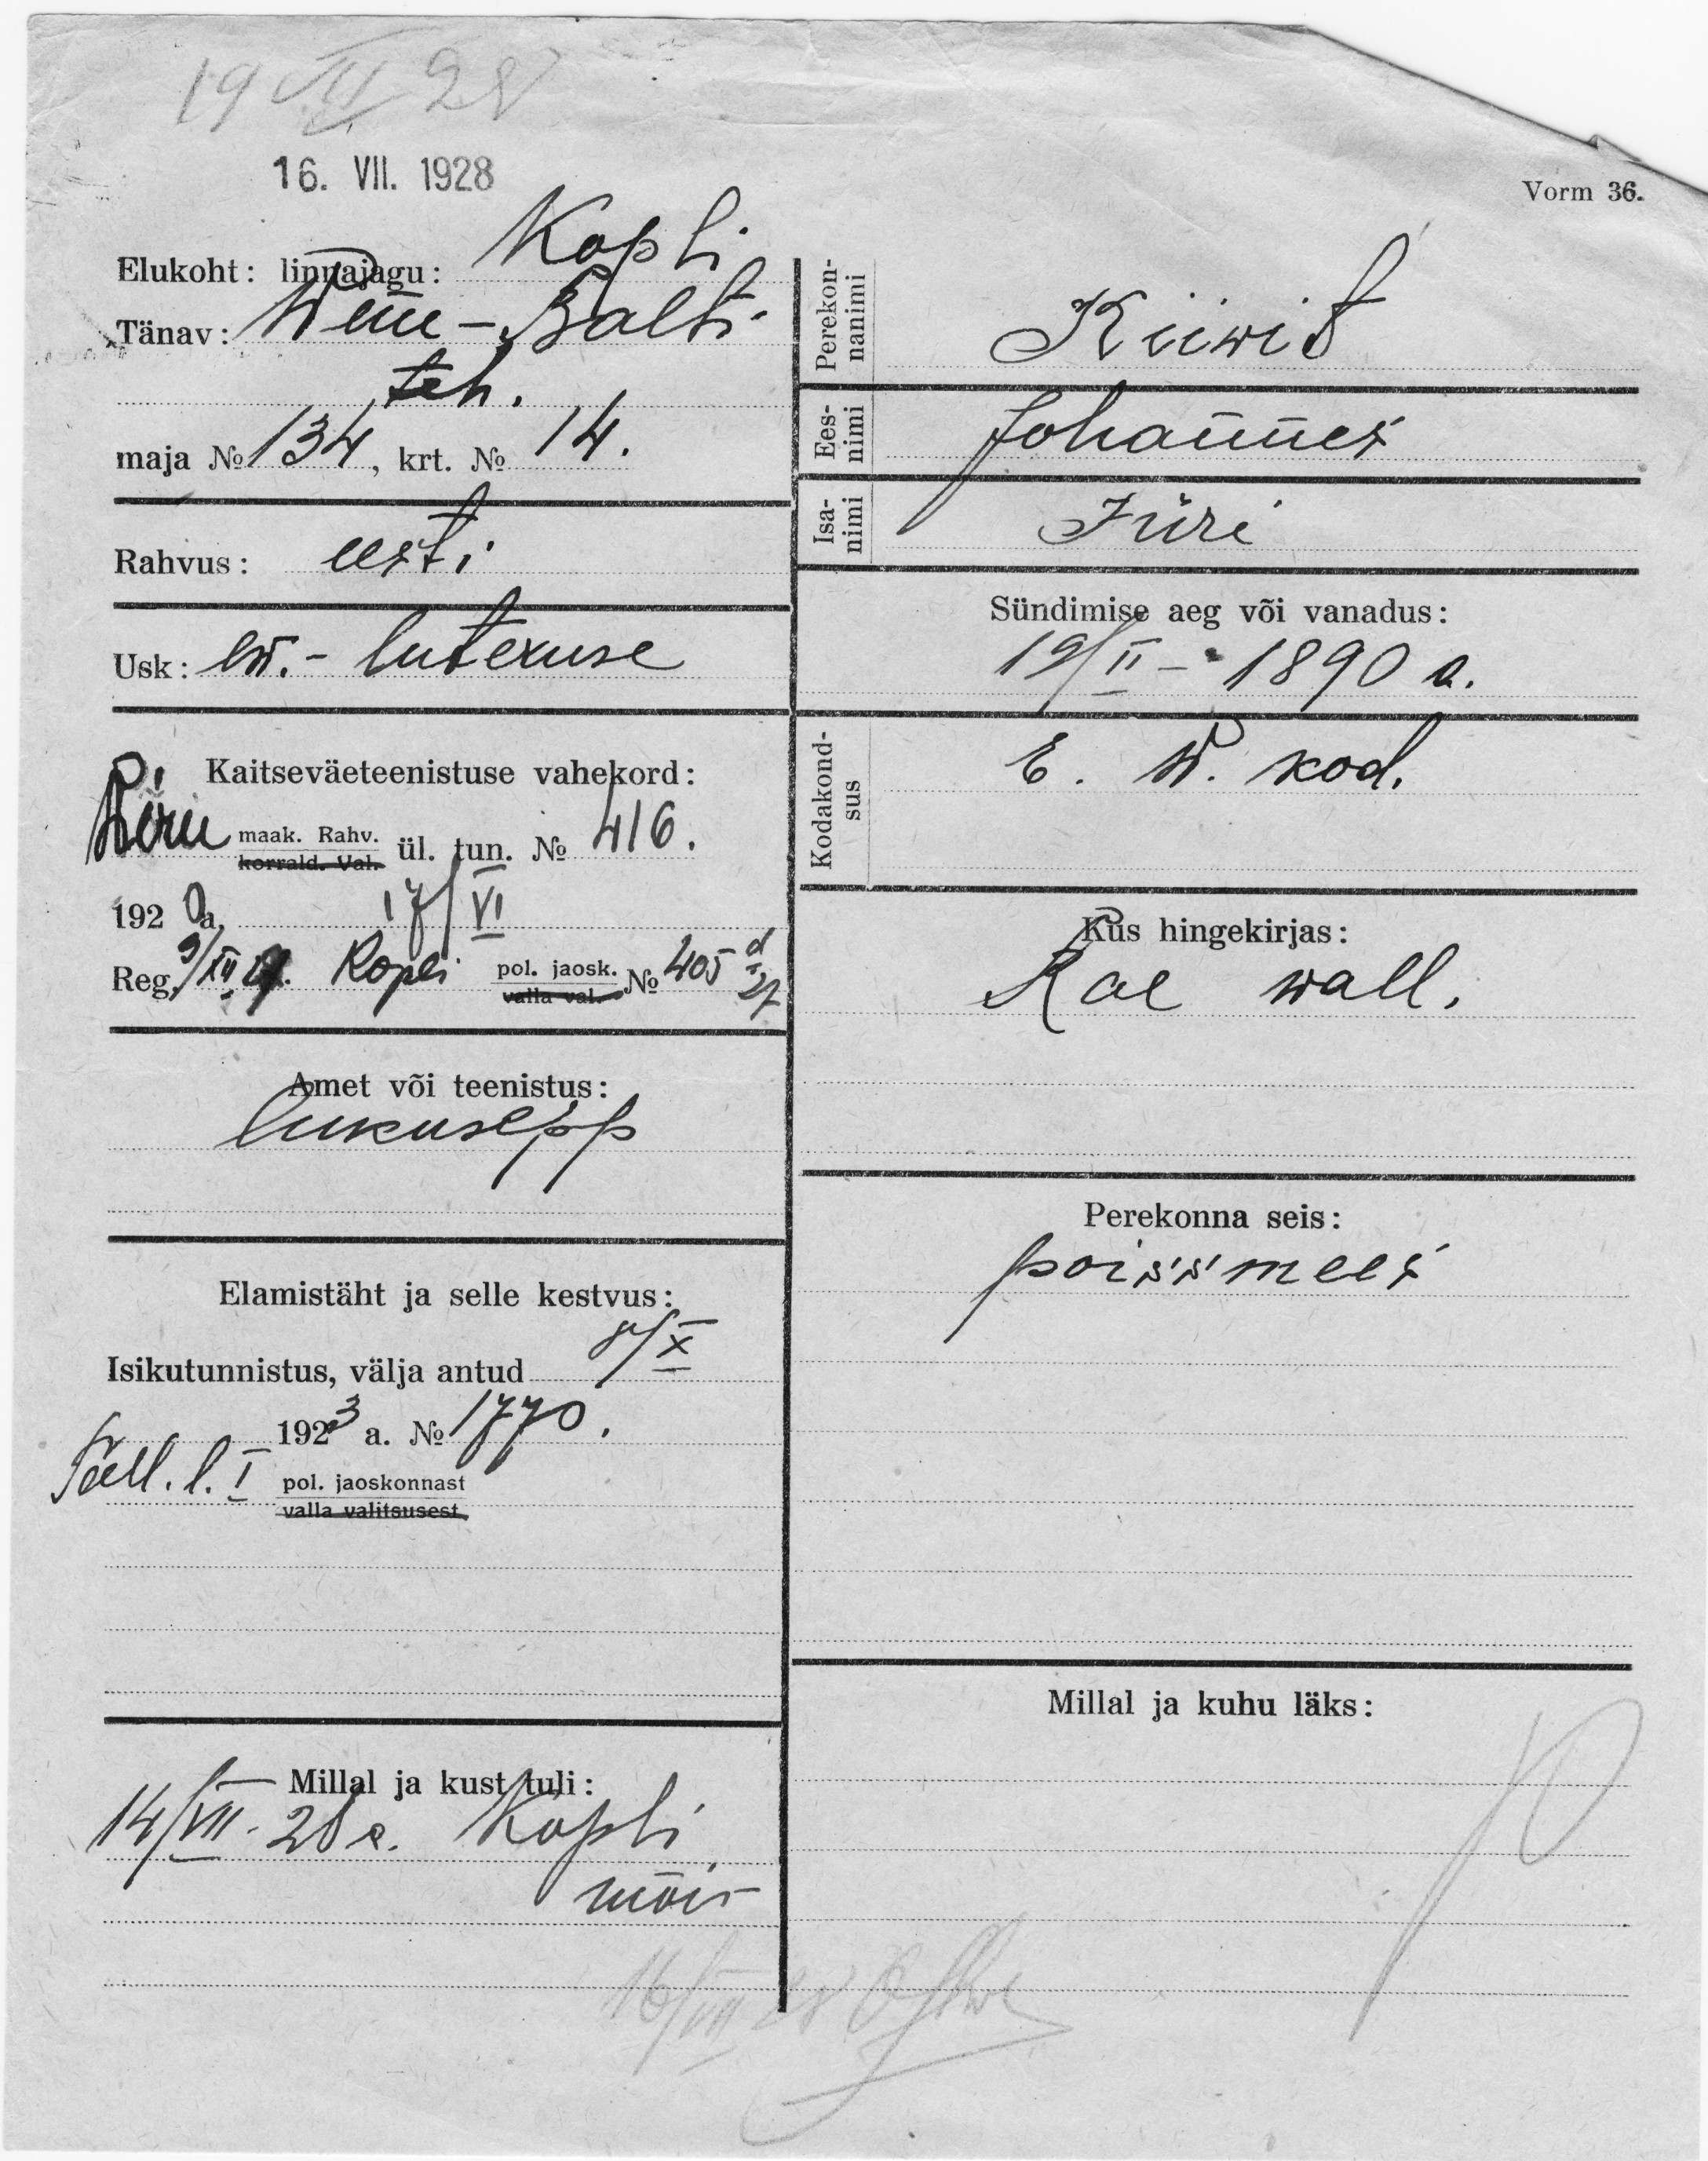 19 VII 28
16. VII. 1928
Vorm 36.
Elukoht: linnajagu: Kopli
Tänav: Wene-Balti
teh.
maja № 134, krt. № 14.
Rahvus: eesti
Usk: ew.- luteruse
Kaitseväeteenistuse vahekord:
Wiru maak. Rahv. ül. tun. № 416.
korrald. Val.
1920 a. 17/VI
Reg. 9/XII 27. Kopli pol. jaosk. № 405 d/27
valla val.
Amet või teenistus:
lukusepp
Elamistäht ja selle kestvus:
Isikutunnistus, välja antud 8/X
1923 a. № 1770.
Tall. l. I pol. jaoskonnast
valla valitsusest
Millal ja kust tuli:
14/VII. 28 a. Kopli
mõis
Perekonnanimi
Kiiwit
Eesnimi
Johannes
Isanimi
Jüri
Sündimise aeg või vanadus:
19/II - 1890 a.
Kodakondsus
E. W. kod.
Kus hingekirjas:
Rae wall.
Perekonna seis:
poissmees
Millal ja kuhu läks:
16/VII 28